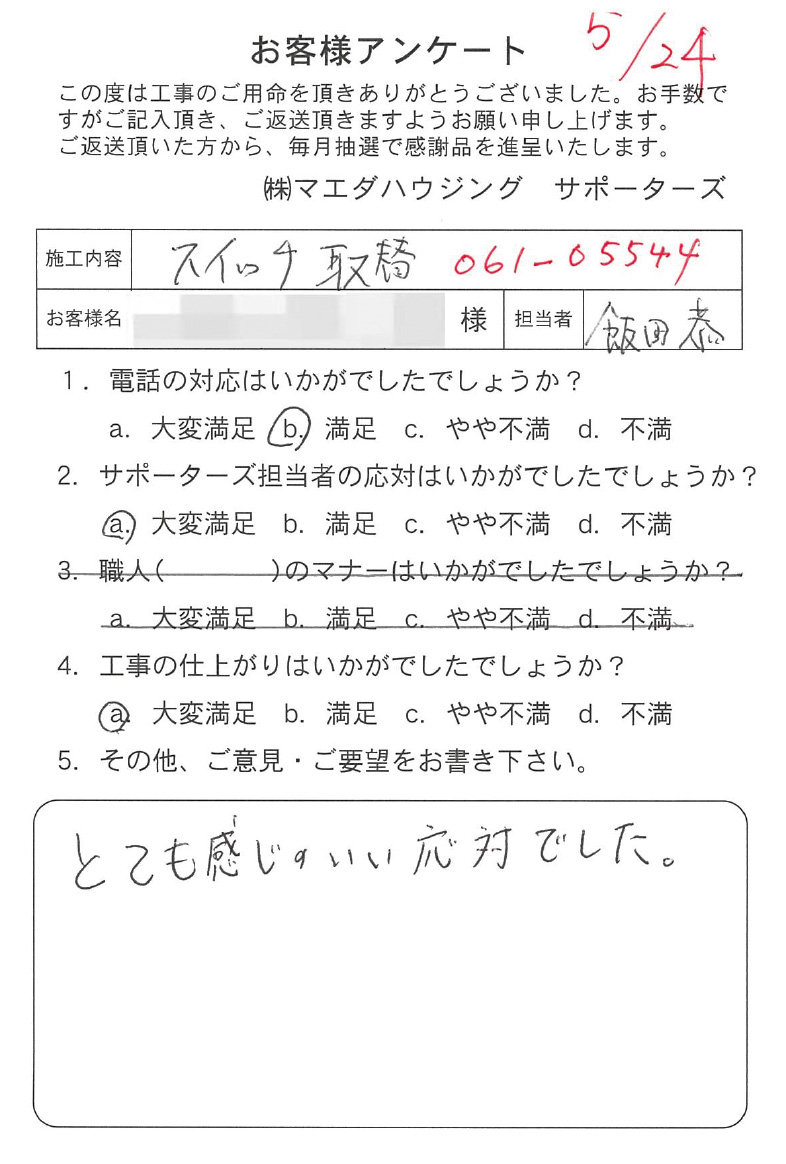 5/24
お客様アンケート
この度は工事のご用命を頂きありがとうございました。お手数で
すがご記入頂き、ご返送頂きますようお願い申し上げます。
ご返送頂いた方から、毎月抽選で感謝品を進呈いたします。
㈱マエダハウジング　サポーターズ
施工内容 スイッチ取替 061-05544
お客様名 様 担当者 飯田恭
1. 電話の対応はいかがでしたでしょうか？
a. 大変満足 b. 満足 c. やや不満 d. 不満
2. サポーターズ担当者の応対はいかがでしたでしょうか？
a. 大変満足 b. 満足 c. やや不満 d. 不満
3. 職人(　　　　)のマナーはいかがでしたでしょうか？
a. 大変満足 b. 満足 c. やや不満 d. 不満
4. 工事の仕上がりはいかがでしたでしょうか？
a. 大変満足 b. 満足 c. やや不満 d. 不満
5. その他、ご意見・ご要望をお書き下さい。
とても感じのいい応対でした。